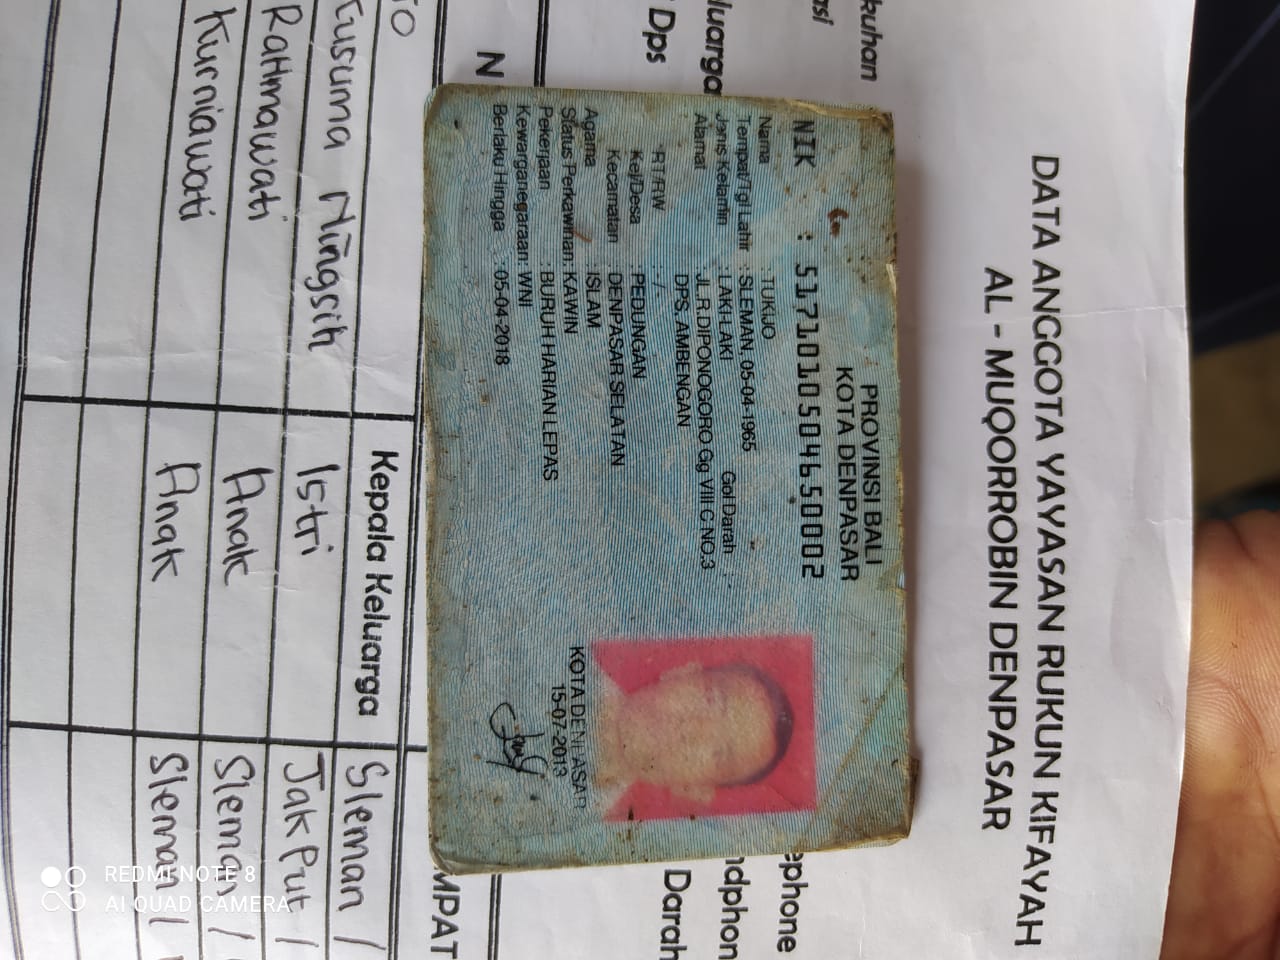 DATA ANGGOTA YAYASAN RUKUN KIFAYAH
AL - MUQORROBIN DENPASAR
kuhan
asi
ephone
luarga
ndphon
Dps
Darah
N
MPAT
PROVINSI BALI
KOTA DENPASAR
NIK : 5171010504650002
Nama : TUKIJO
Tempat/Tgl Lahir : SLEMAN, 05-04-1965
Jenis Kelamin : LAKI-LAKI Gol.Darah : -
Alamat : JL.R.DIPONOGORO Gg VIII C NO.3
DPS.AMBENGAN
RT/RW : -/-
Kel/Desa : PEDUNGAN
Kecamatan : DENPASAR SELATAN
Agama : ISLAM
Status Perkawinan: KAWIN
Pekerjaan : BURUH HARIAN LEPAS
Kewarganegaraan: WNI
Berlaku Hingga : 05-04-2018
KOTA DENPASAR
15-07-2013
JO Kepala Keluarga Sleman /
Kusuma Ningsih Istri Jak Put /
Rahmawati Anak Sleman /
Kurniawati Anak Sleman /
REDMI NOTE 8
AI QUAD CAMERA